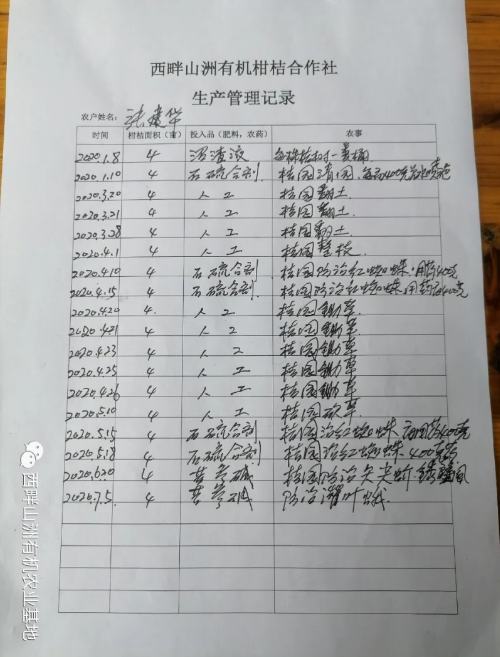 西畔山洲有机柑桔合作社
生产管理记录
农户姓名：张建华
时间 柑桔面积（亩） 投入品（肥料，农药） 农事
2020.1.8 4 沼渣液 每株桔树一
2020.1.10 4 石硫合剂 桔园清园
2020.3.20 4 人工 桔园翻土
2020.3.21 4 人工 桔园翻土
2020.3.28 4 人工 桔园翻土
2020.4.1 4 人工 桔园整枝
2020.4.10 4 石硫合剂 桔园防治红蜘蛛 用药400克
2020.4.15 4 石硫合剂 桔园防治红蜘蛛 用药400克
2020.4.20 4 人工 桔园锄草
2020.4.21 4 人工 桔园锄草
2020.4.23 4 人工 桔园锄草
2020.4.25 4 人工 桔园锄草
2020.4.26 4 人工 桔园锄草
2020.5.10 4 人工 桔园砍草
2020.5.15 4 石硫合剂 桔园治红蜘蛛 400克
2020.5.18 4 石硫合剂 桔园治红蜘蛛 400克
2020.6.20 4 苦参碱 桔园防治矢尖蚧
2020.7.5 4 苦参碱 防治潜叶蛾
西畔山洲有机农业基地